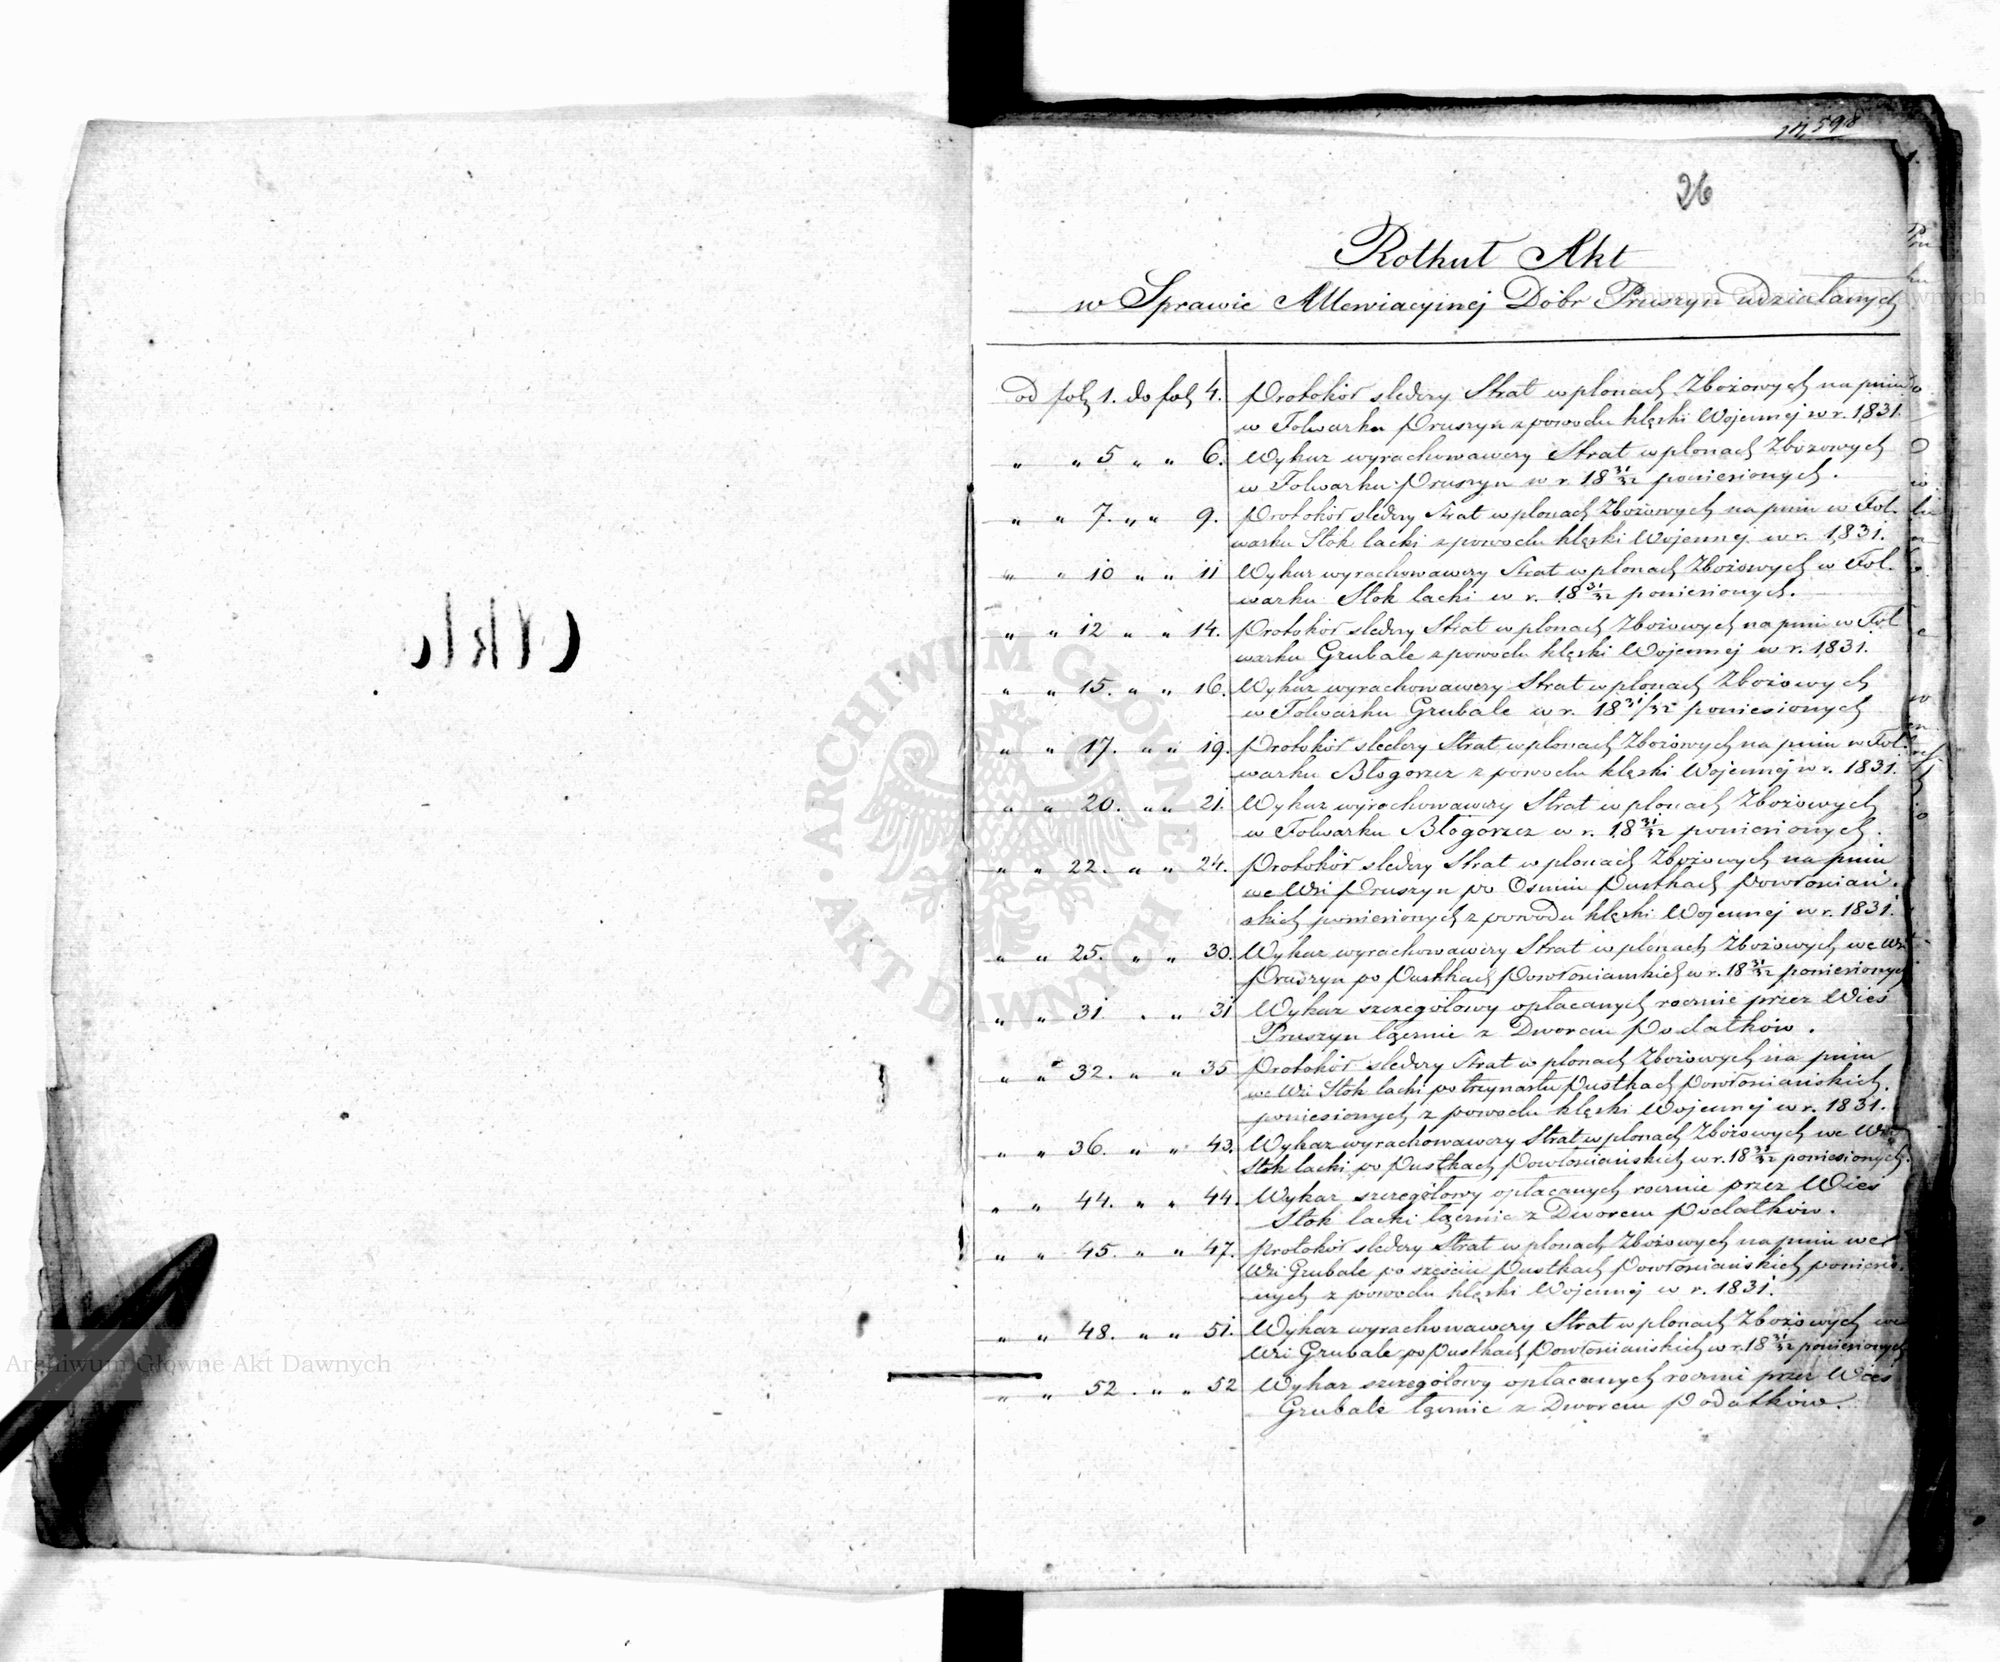 14,598
26
Rothuł Akt
w Sprawie Allewiacyinej Dóbr Pruszyn udziałanych
od folz 1. do folz 4. Protokół sledczy Strat w plonach Zbożowych na pniu
w Folwarku Pruszyn z powodu klęski Wojennej w r. 1831.
" " 5 " " 6. Wykaz wyrachowawczy Strat w plonach Zbożowych
w Folwarku Pruszyn w r. 18 31/32 poniesionych.
" " 7. " " 9. Protokół sledczy Strat w plonach Zbożowych na pniu w Fol-
warku Stok lacki z powodu klęski Wojennej w r. 1831.
" " 10 " " 11 Wykaz wyrachowawczy Strat w plonach Zbożowych w Fol-
warku Stok lacki w r. 18 31/32 poniesionych.
" " 12 " " 14. Protokół sledczy Strat w plonach Zbożowych na pniu w Fol
warku Grubale z powodu klęski Wojennej w r. 1831.
" " 15. " " 16. Wykaz wyrachowawczy Strat w plonach Zbożowych
w Folwarku Grubale w r. 18 31/32 poniesionych
" " 17. " " 19. Protokół sledczy Strat w plonach Zbożowych na pniu w Fol-
warku Błogorzez z powodu klęski Wojennej w r. 1831.
" " 20. " " 21. Wykaz wyrachowawczy Strat w plonach Zbożowych
w Folwarku Błogorzez w r. 18 31/32 poniesionych.
" " 22. " " 24. Protokół sledczy Strat w plonach Zbożowych na pniu
we Wsi Pruszyn po Osmiu Pustkach Powłoniań-
skich poniesionych z powodu klęski Wojennej w r. 1831.
" " 25. " " 30. Wykaz wyrachowawczy Strat w plonach Zbożowych we Wsi
Pruszyn po Pustkach Powłoniamskich w r. 18 31/32 poniesionych
" " 31 " " 31 Wykaz szczegółowy opłacanych rocznie przez Wieś
Pruszyn łącznie z Dworem Podatków.
" " 32. " " 35 Protokół sledczy Strat w plonach Zbożowych na pniu
we Wsi Stok lacki po trzynastu Pustkach Powłoniańskich
poniesionych z powodu klęski Wojennej w r. 1831.
" " 36. " " 43. Wykaz wyrachowawczy Strat w plonach Zbożowych we Wsi
Stok lacki po Pustkach Powłoniańskich w r. 18 31/32 poniesionych.
" " 44. " " 44. Wykaz szczegółowy opłacanych rocznie przez Wieś
Stok lacki łącznie z Dworem Podatków.
" " 45. " " 47. Protokół sledczy Strat w plonach Zbożowych na pniu we
Wsi Grubale po sześciu Pustkach Powłoniańskich poniesio-
nych z powodu klęski Wojennej w r. 1831.
" " 48. " " 51. Wykaz wyrachowawczy Strat w plonach Zbożowych we
Wsi Grubale po Pustkach Powłoniańskich w r. 18 31/32 poniesionych
" " 52. " " 52 Wykaz szczegółowy opłacanych rocznie przez Wieś
Grubale łącznie z Dworem Podatków.
ARCHIWUM GŁÓWNE AKT DAWNYCH
Archiwum Główne Akt Dawnych